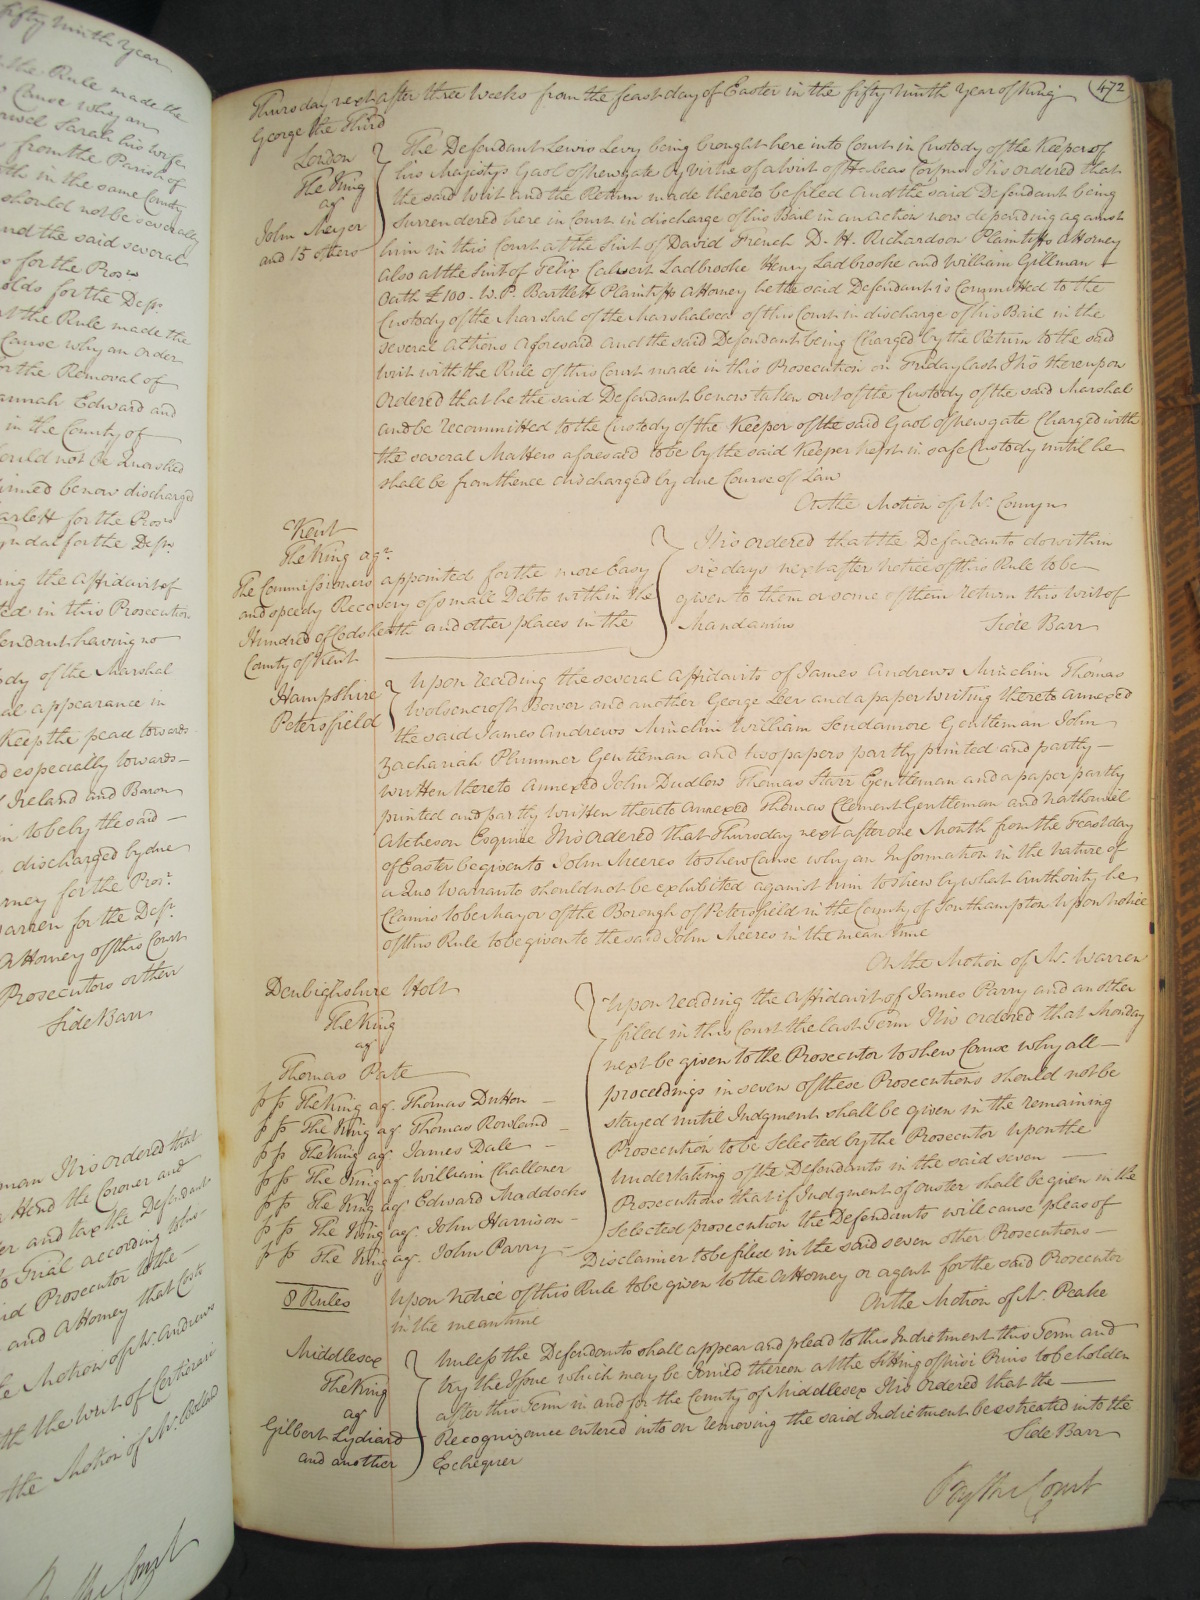 fifty Ninth Year
the Rule made the
Cause why an
Sarah his wife
from the Parish of
in the same County
should not be severally
and the said several
for the Pros.rs
olds for the Def.ts
the Rule made the
Cause why an order
for the Removal of
Hannah Edward and
in the County of
should not be Quashed
be now discharged
for the Pros.rs
for the Def.ts
the Affidavit of
in this Prosecution
Defendant having no
dy of the Marshal
appearance in
Keep the peace towards
especially towards
Ireland and Baron
to be by the said
discharged by due
for the Pros.r
Warren for the Def.t
Attorney of this Court
Prosecutors or their
Side Barr
It is ordered that
the Coroner and
and tax the Defendant
to Trial according to his
Prosecutor to the
and Attorney that Costs
Motion of Mr. Andrews
the writ of Certiorari
the Motion of Mr. Bolland
By the Court
472
Thursday next after three Weeks from the feast day of Easter in the fifty Ninth Year of King
George the Third
London
The King
ag.t
John Meyer
and 15 others
The Defendant Lewis Levy being brought here into Court in Custody of the Keeper of
his Majestys Gaol of Newgate By virtue of a Writ of Habeas Corpus It is ordered that
the said Writ and the Return made thereto be filed And the said Defendant being
Surrendered here in Court in discharge of his Bail in an action now depending against
him in this Court at the Suit of David French D. H. Richardson Plaintiffs Attorney
also at the Suit of Felix Calvert Ladbrooke Henry Ladbrooke and William Gillman
Oath £100. W. P. Bartlett Plaintiffs Attorney he the said Defendant is Committed to the
Custody of the Marshal of the Marshalsea of this Court in discharge of his Bail in the
several actions aforesaid and the said Defendant being Charged by the Return to the said
Writ with the Rule of this Court made in this Prosecution on Friday last It is thereupon
Ordered that he the said Defendant be now taken out of the Custody of the said Marshal
and be recommitted to the Custody of the Keeper of the said Gaol of Newgate Charged with
the several Matters aforesaid to be by the said Keeper kept in safe Custody until he
shall be from thence discharged by due Course of Law
On the Motion of Mr. Comyn
Kent
The King ag.t
The Commissioners appointed for the more Easy
and speedy Recovery of small Debts within the
Hundred of Codsheath and other places in the
County of Kent
It is ordered that the Defendants do within
six days next after notice of this Rule to be
given to them or some of them return this writ of
Mandamus
Side Barr
Hampshire
Petersfield
Upon reading the several affidavits of James Andrews Minchin Thomas
Wolsencroft Bower and another George Leer and a paper Writing thereto annexed
the said James Andrews Minchin William Scudamore Gentleman John
Zachariah Plummer Gentleman and two papers partly printed and partly
written thereto annexed John Dudlow Thomas Starr Gentleman and a paper partly
printed and partly written thereto annexed Thomas Clement Gentleman and Nathaniel
Atcheson Esquire It is Ordered that Thursday next after one Month from the Feast day
of Easter be given to John Meeres to shew Cause why an Information in the nature of
a Quo Warranto should not be exhibited against him to shew by what authority he
Claims to be Mayor of the Borough of Petersfield in the County of Southampton Upon Notice
of this Rule to be given to the said John Meeres in the mean time
On the Motion of Mr. Warren
Denbighshire Holt
The King
ag.t
Thomas Pate
þþ The King ag. Thomas Dutton
þþ The King ag. Thomas Rowland
þþ The King ag. James Dale
þþ The King ag. William Challoner
þþ The King ag. Edward Maddocks
þþ The King ag. John Harrison
þþ The King ag. John Parry
8 Rules
Upon reading the affidavit of James Parry and another
filed in this Court the last Term It is ordered that Monday
next be given to the Prosecutor to shew Cause why all
proceedings in seven of these Prosecutions should not be
stayed until Judgment shall be given in the remaining
Prosecution to be Selected by the Prosecutor upon the
Undertaking of the Defendants in the said seven
Prosecutions that if Judgment of ouster shall be given in the
selected prosecution the Defendants will cause pleas of
Disclaimer to be filed in the said seven other Prosecutions
Upon notice of this Rule to be given to the Attorney or agent for the said Prosecutor
in the meantime
On the Motion of Mr. Peake
Middlesex
The King
ag
Gilbert Lydiard
and another
Unless the Defendants shall appear and plead to this Indictment this Term and
try the Issue which may be Joined thereon at the Sitting of Nisi Prius to be holden
after this Term in and for the County of Middlesex It is Ordered that the
Recognizance entered into on removing the said Indictment be estreated into the
Exchequer
Side Barr
By the Court